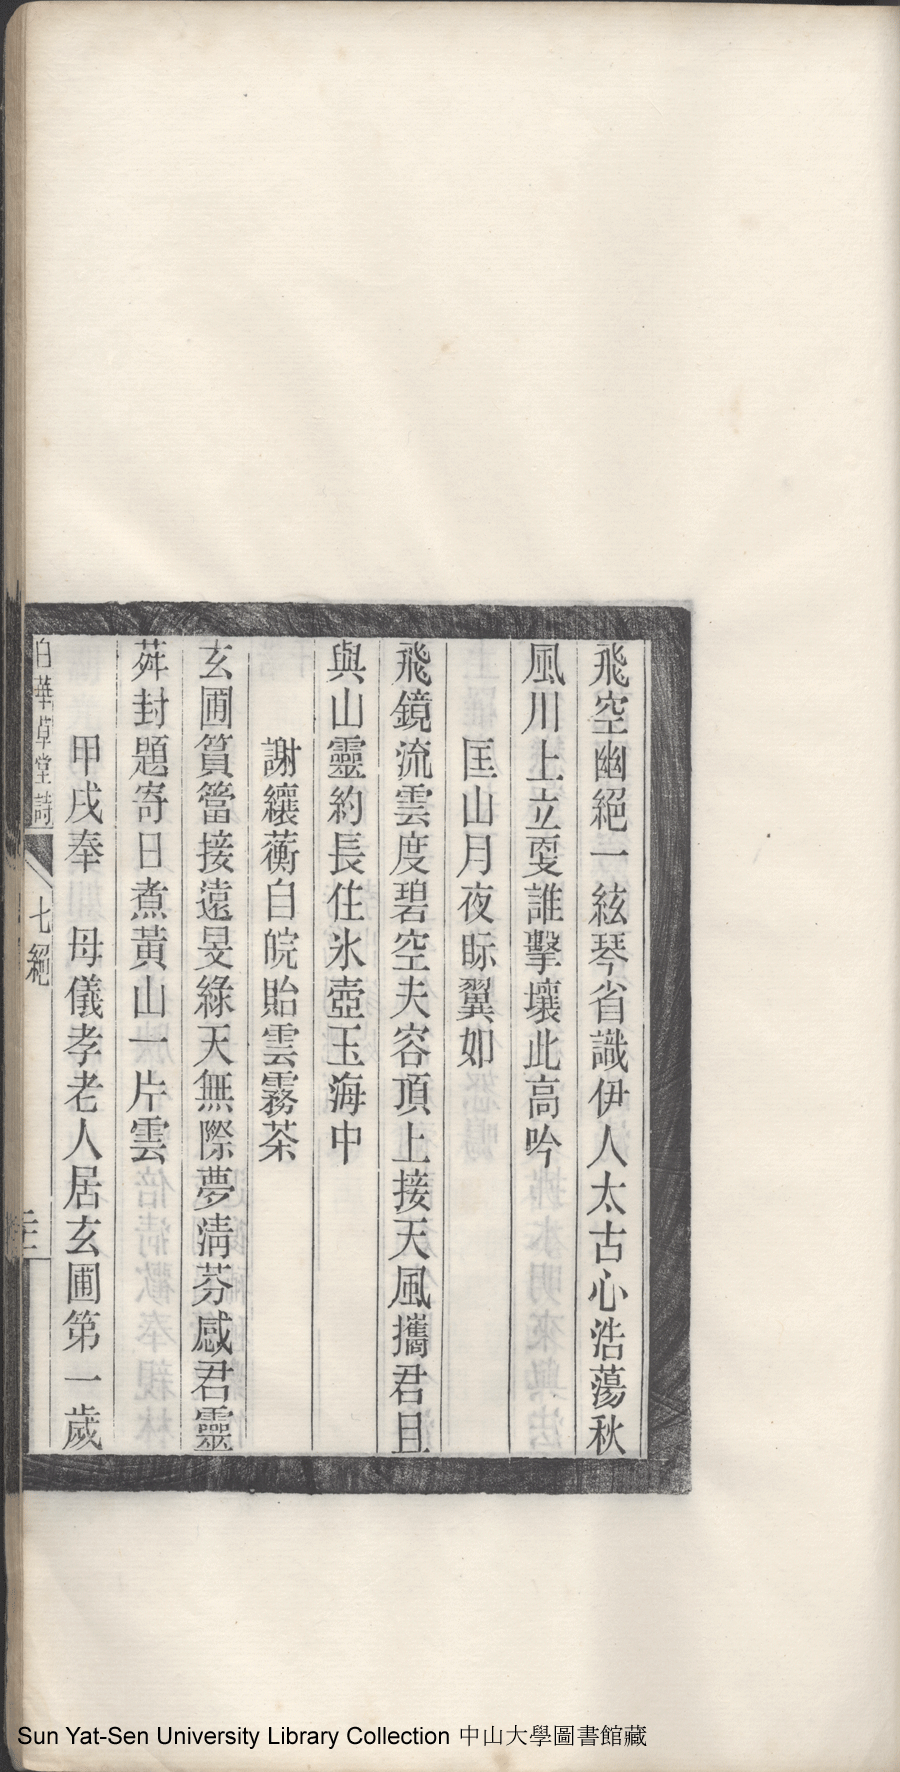 飛空幽絕一絃琴省識伊人太古心浩蕩秋
風川上立耎誰擊壤此高吟
匡山月夜眎翼如
飛鏡流雲度碧空夫容頂上接天風攜君且
與山靈約長住氷壺玉海中
謝纕蘅自皖貽雲霧茶
玄圃篔簹接遠旻綠天無際夢淸芬感君靈
荈封題寄日煮黃山一片雲
甲戌奉 母儀孝老人居玄圃第一歲
白華草堂詩
七絕
Sun Yat-Sen University Library Collection 中山大學圖書館藏